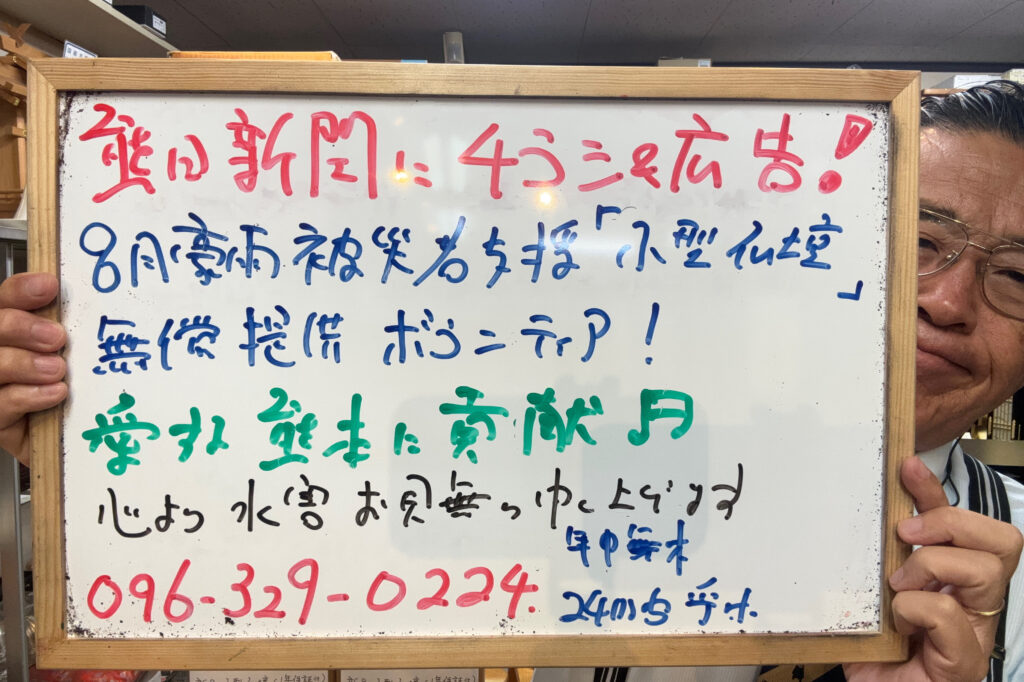 熊日新聞に チラシ&広告!
8月豪雨被災者支援「小型仏壇」
無償提供 ボランティア!
愛する 熊本に貢献 月
心より 水害お見舞い申し上げます
年中無休
096-329-0224.
24